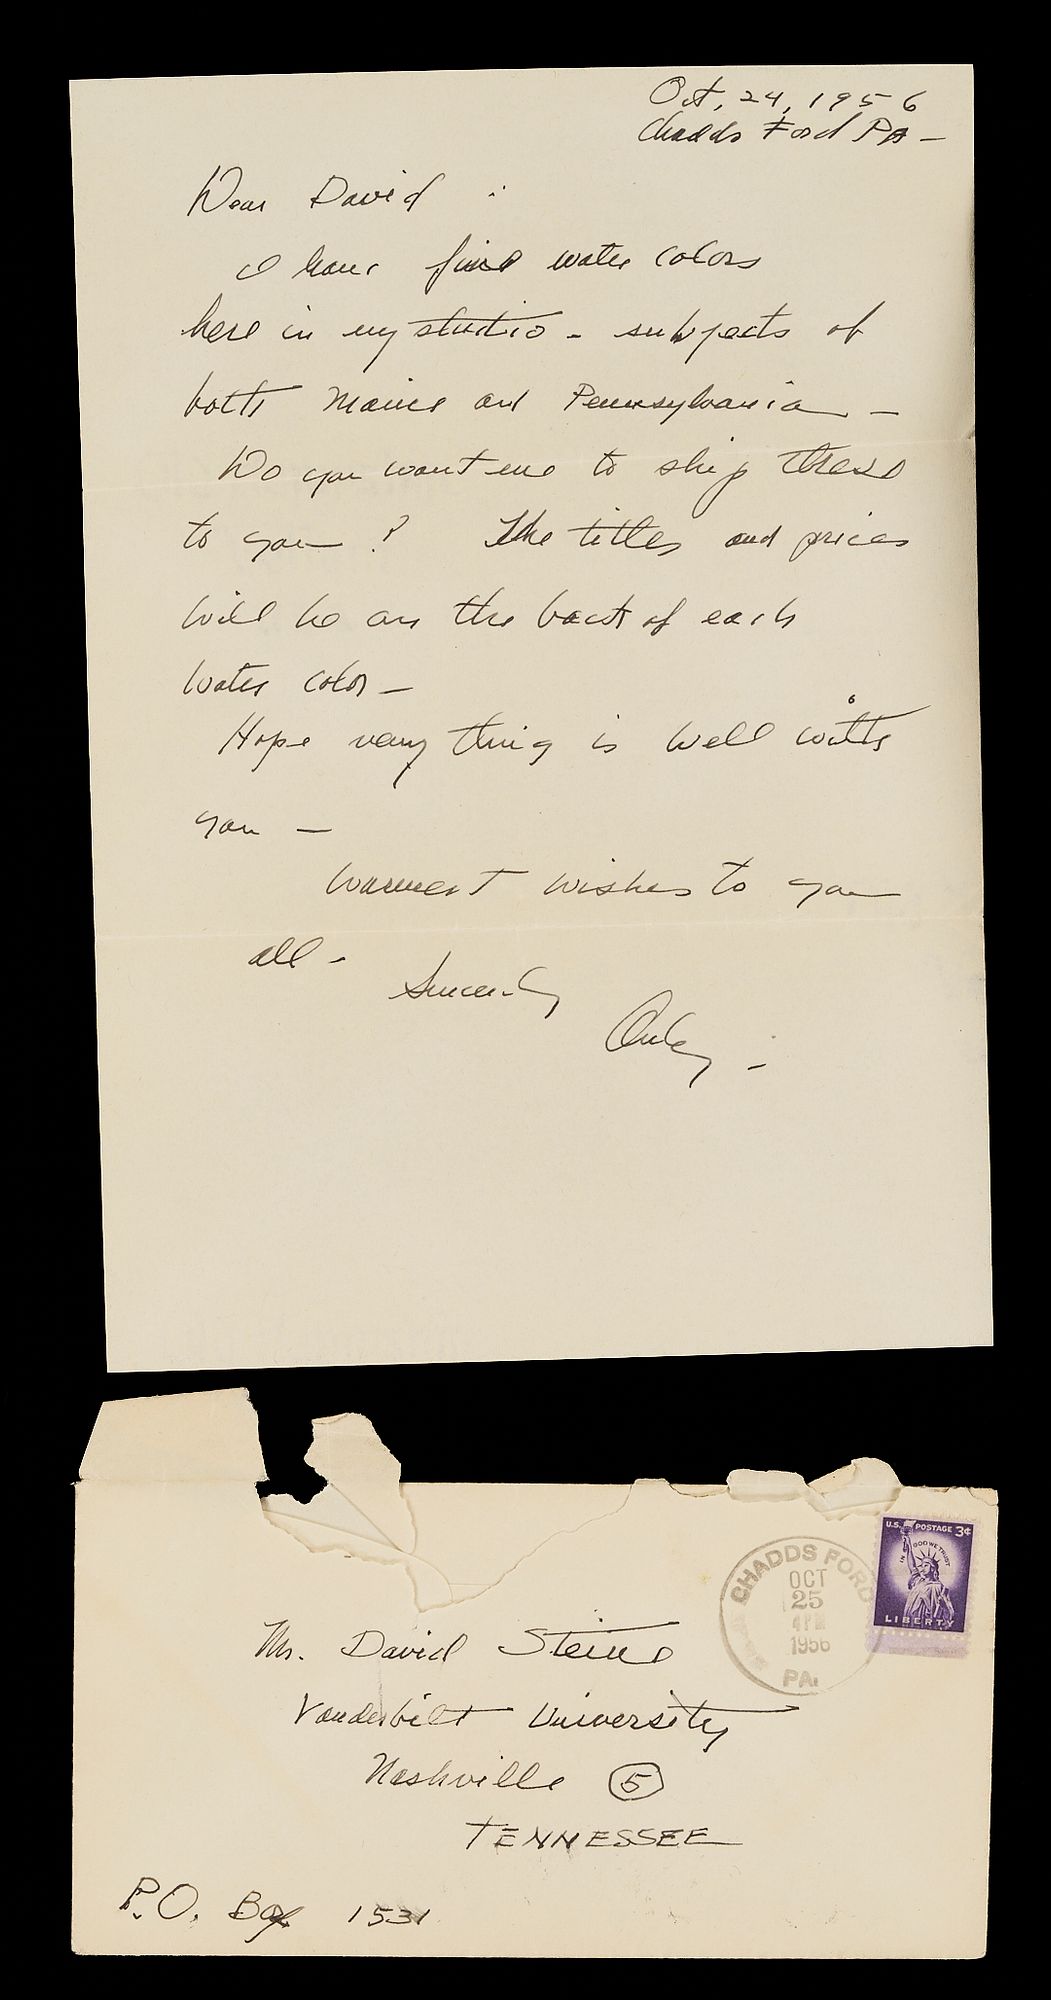 Oct, 24, 1956
Chadds Ford PA -
Dear David :
I have five water colors
here in my studio - subjects of
both Maine and Pennsylvania -
Do you want me to ship these
to you ? The titles and prices
will be on the back of each
water color -
Hope very thing is well with
you -
Warmest wishes to you
all -
Sincerely
Andy -
U.S. POSTAGE 3¢
IN GOD WE TRUST
LIBERTY
CHADDS FORD
OCT
25
4 PM
1956
PA.
Mr. David Steine
Vanderbilt University
Nashville 5
TENNESSEE
P.O. Box 1531